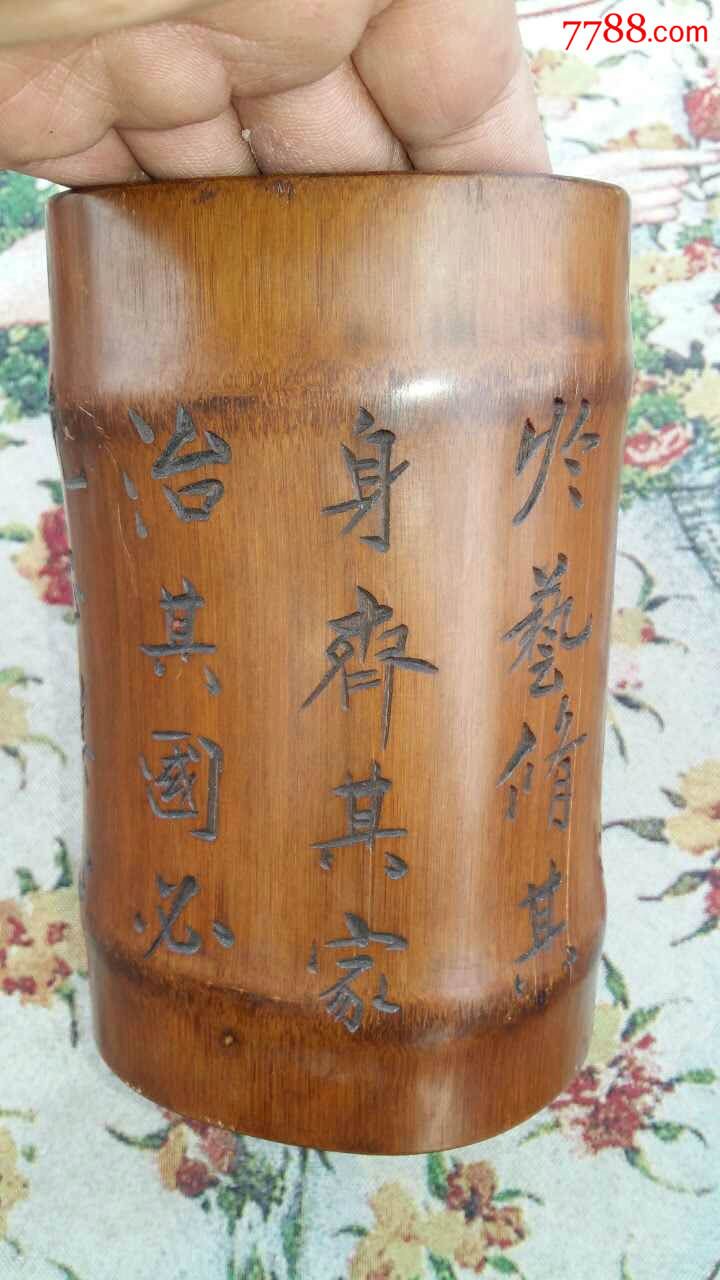 7788.com
於藝修其
身齊其家
治其國必